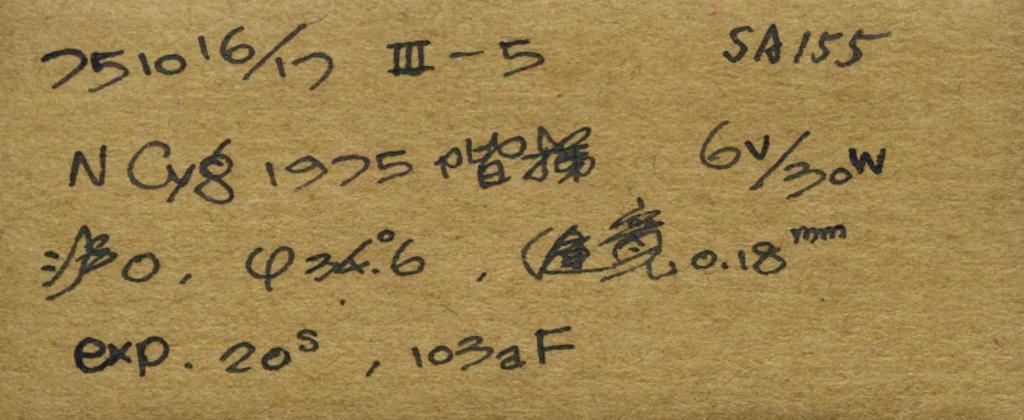 751016/17 III-5 SA155
N Cyg 1975 階梯 6V/30W
波0, φ34.°6, 寬 0.18mm
exp. 20s, 103aF